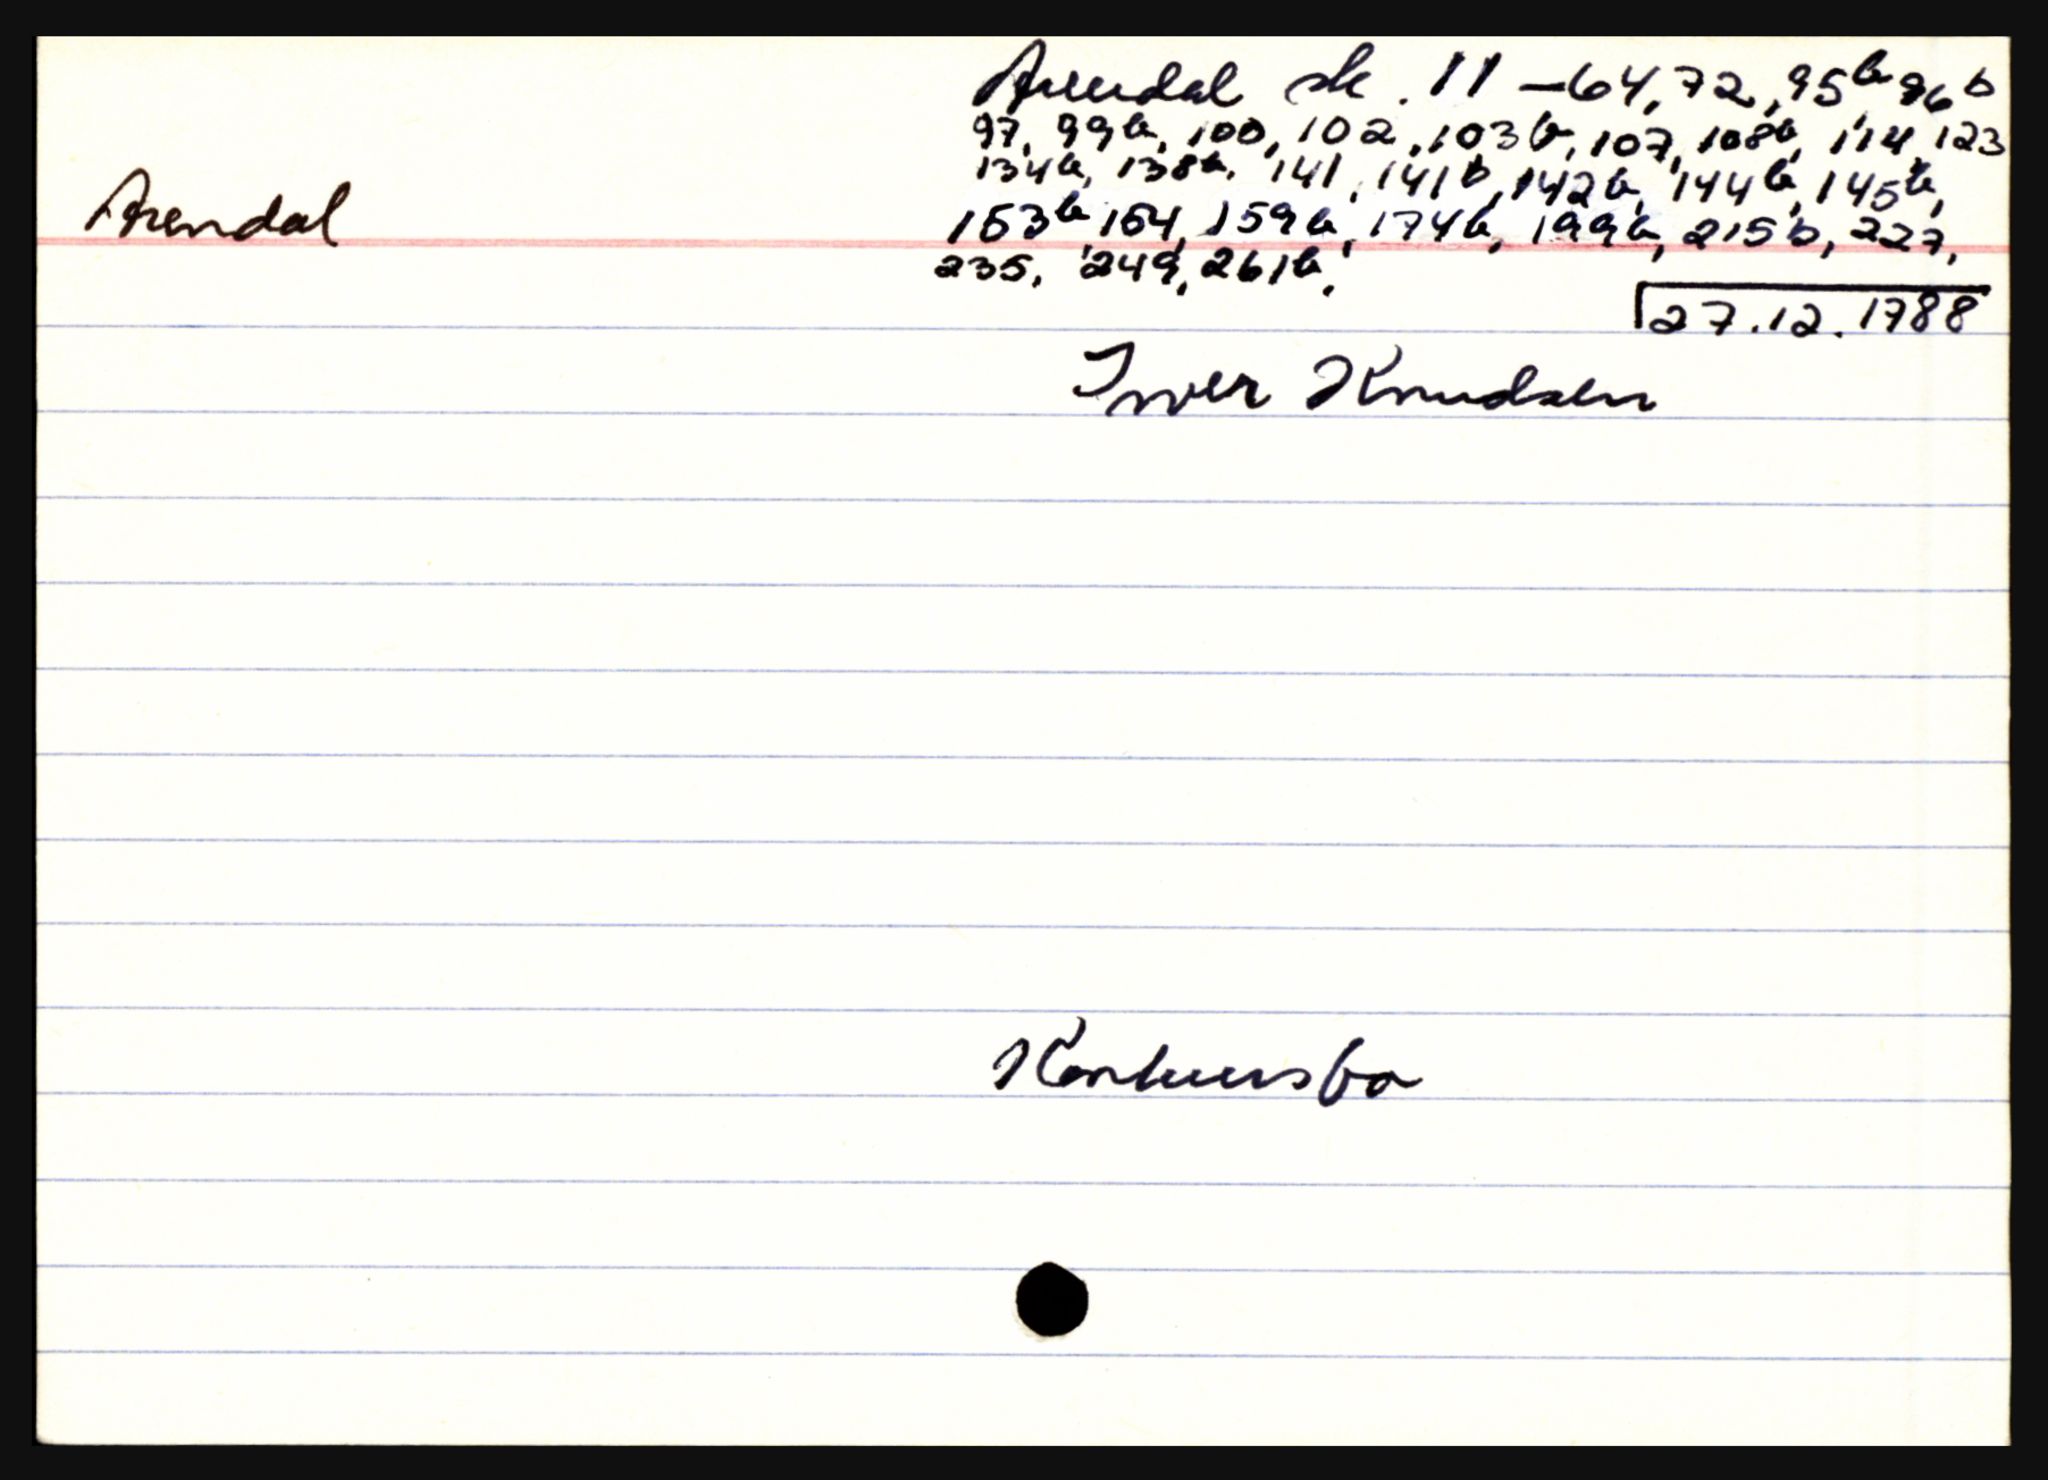 Arendal sk. 11 - 64, 72, 95b 96b
97, 99b, 100, 102, 103b, 107, 108b, 114, 123
134b, 138b, 141, 141b, 142b, 144b, 145b,
Arendal
153b 154, 159b, 174b, 199b, 215b, 227,
235, 249, 261b,
27.12.1788
Iver Knudsen
Konkursbo